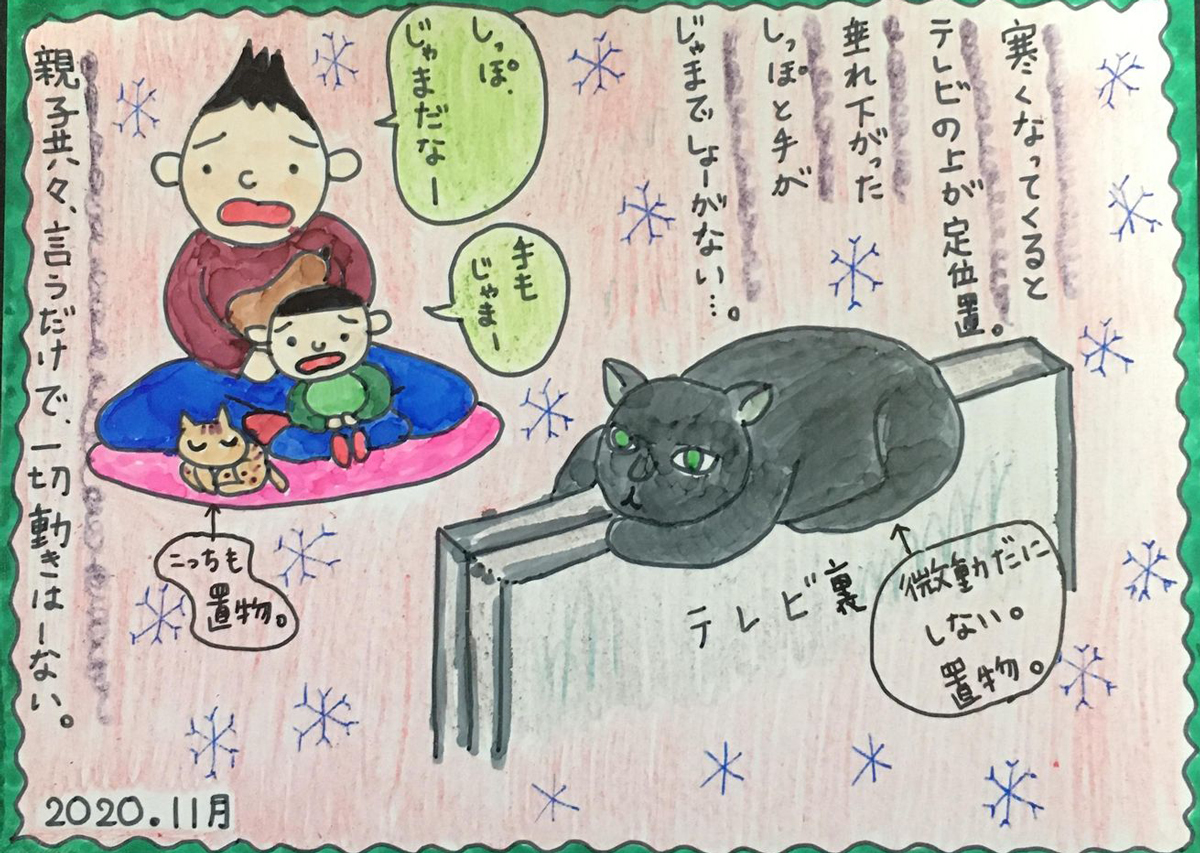 寒くなってくると
テレビの上が定位置。
垂れ下がった
しっぽと手が
じゃまでしょーがない…。
しっぽ、
じゃまだなー
手も
じゃまー
微動だに
しない。
置物。
テレビ裏
こっちも
置物。
親子共々、言うだけで、一切動きはーない。
2020.11月